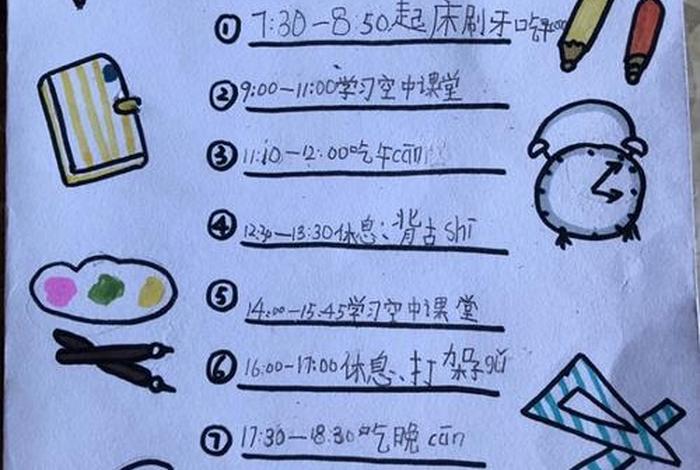 ① 7:30-8:50起床刷牙吃早
② 9:00-11:00学习空中课堂
③ 11:10-12:00吃午cān
④ 12:30-13:30休息、背古shī
⑤ 14:00-15:45学习空中课堂
⑥ 16:00-17:00休息、打架子gǔ
⑦ 17:30-18:30吃晚cān